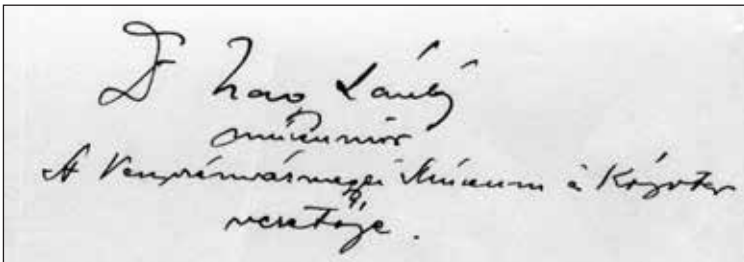 Dr Nagy László
múzeumőr
A Veszprémvármegyei Múzeum és Könyvtár
vezetője.